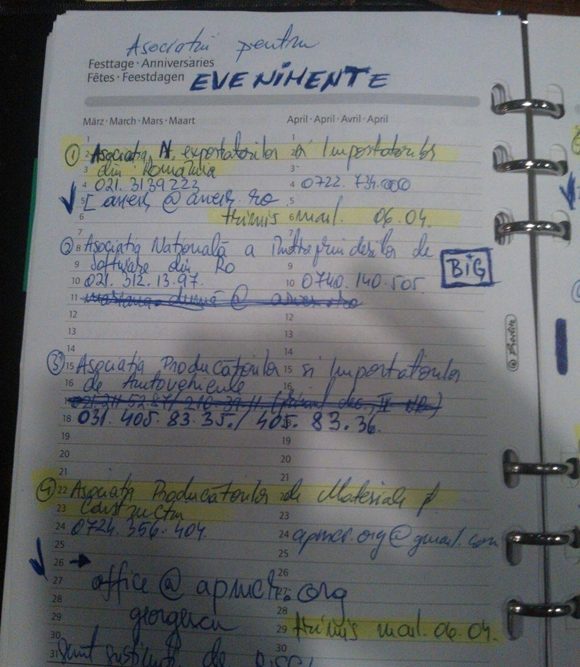 Asociatii pentru
Festtage · Anniversaries
Fêtes · Feestdagen EVENIMENTE
März · March · Mars · Maart April · April · Avril · April
1 Asociația N. exportatorilor si Importatorilor
din România
021. 3139223 0722. 734.000
@ .ro
trimis mail. 06.04.
2 Asociația Națională a Intreprinderilor de
Software din Ro BIG
021. 312.13.97. 0740.140.505
3 Asociația Producatorilor si Importatorilor
de Autovehicule
031. 405. 83.35. / 405. 83.36.
4 Asociația Producatorilor de Materiale p.
Constructii
0724. 356. 404. apmcr.org@gmail.com
office @ apmcr.org
georgescu
trimis mail. 06.04.
sunt de